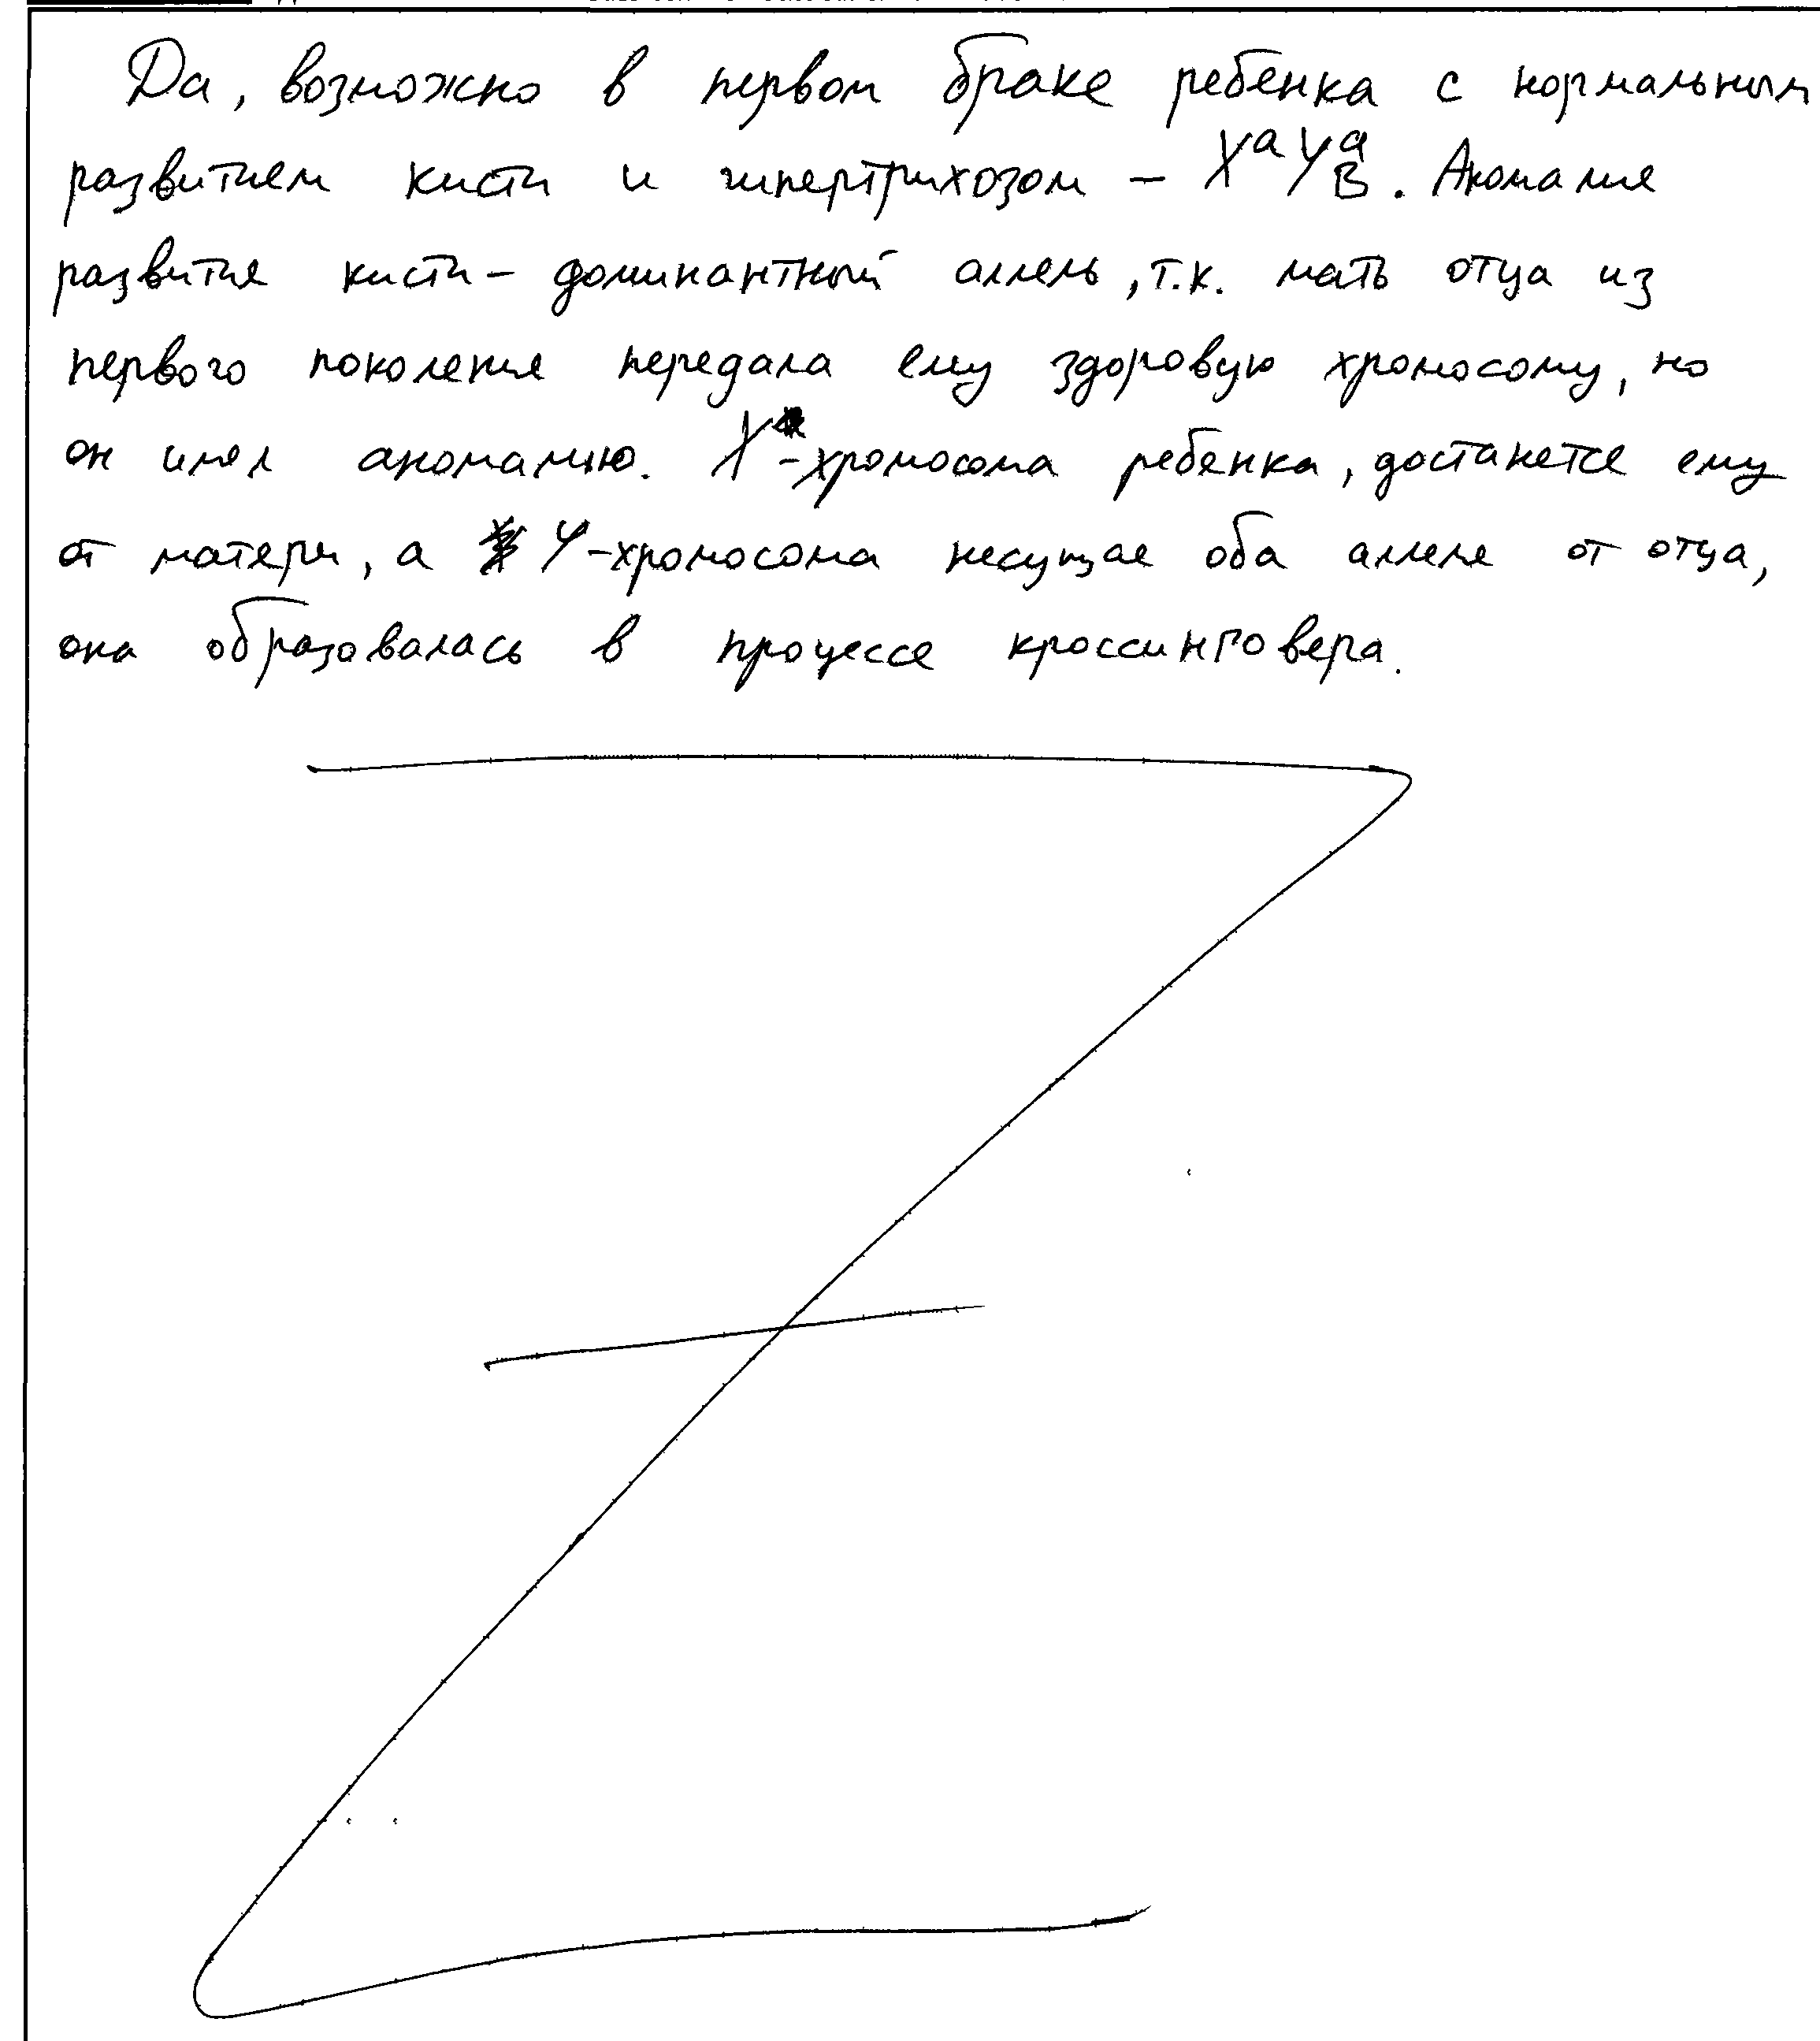 Да, возможно в первом браке ребенка с нормальным
развитием кисти и гипертрихозом – XᵃYᵃ_B. Аномалия
развития кисти – доминантный аллель, т.к. мать отца из
первого поколения передала ему здоровую хромосому, но
он имел аномалию. X-хромосома ребенка, достанется ему
от матери, а Y-хромосома несущая оба аллеля от отца,
она образовалась в процессе кроссинговера.